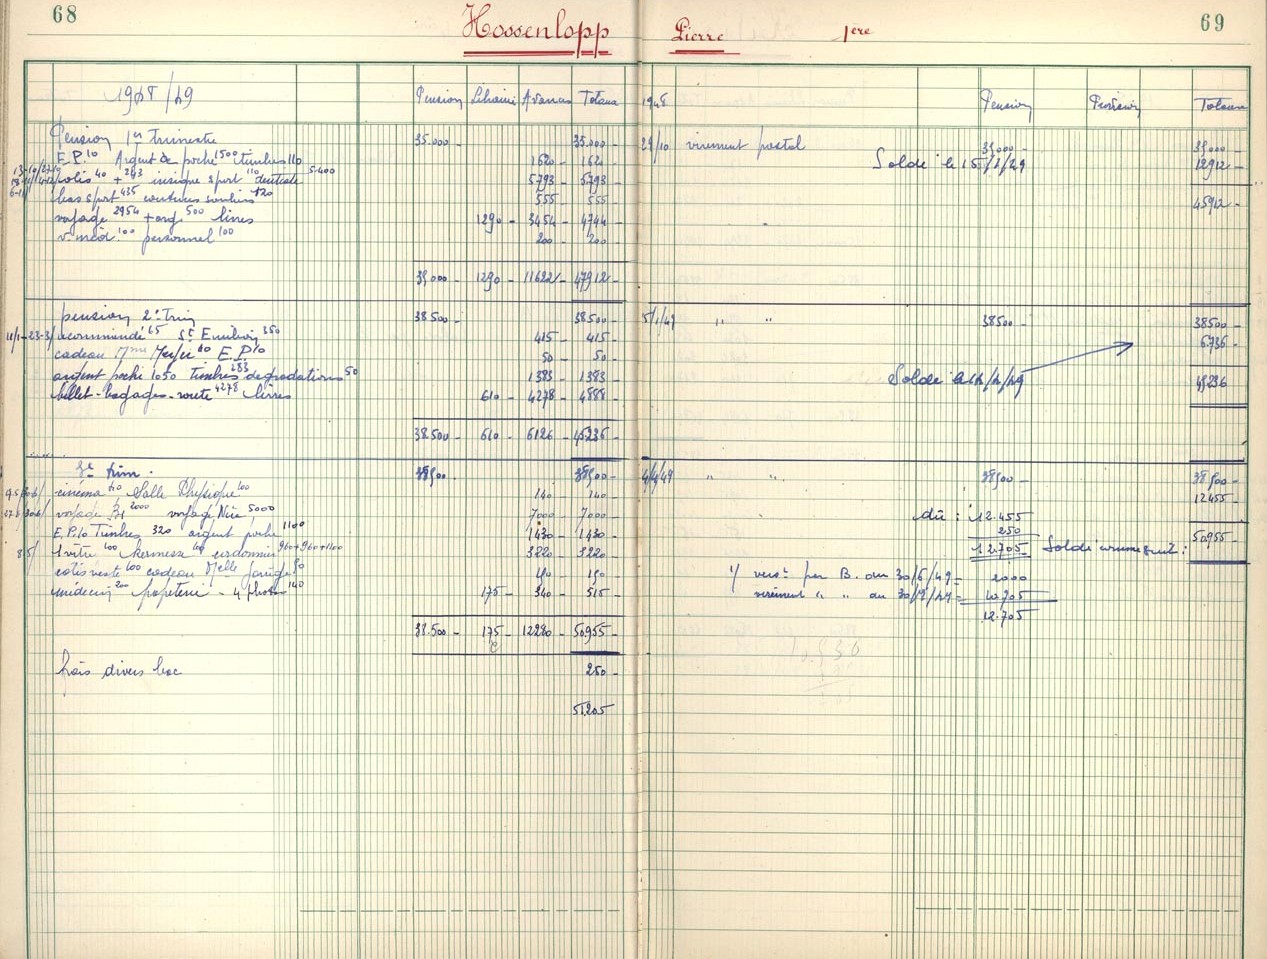 68
Hossenlopp Pierre 1ère
69
1948/49 Pension Librairie Avances Totaux
Pension 1er Trimestre 35.000 - 35.000 -
E.P. 10 Argent de poche 1500 timbres 110 1620 - 1620 -
colis 40 + 243 insigne sport 110 dentiste 5400 5793 - 5793 -
bas sport 435 couture souliers 120 555 - 555 -
voyage 2954 + arg. 500 livres 1290 - 3454 - 4744 -
v. méd. 100 personnel 100 200 - 200 -
35.000 - 1290 - 11622 - 47912 -
pension 2e Trim 38.500 - 38.500 -
11/1-23-3/ recommandé 65 St Emilion 350 415 - 415 -
cadeau Mme 40 E.P. 10 50 - 50 -
argent poche 1050 timbres 283 dégradations 50 1383 - 1383 -
billet-bagages-route 4278 livres 610 - 4278 - 4888 -
38.500 - 610 - 6126 - 45236 -
3e trim. 38500 - 38500 -
cinéma 40 Salle Physique 100 140 - 140 -
voyage 2000 voyage Nice 5000 7000 - 7000 -
E.P. 10 Timbres 320 argent poche 1100 1430 - 1430 -
8/5/ 1 vitre 100 kermesse 100 cordonnier 960+960+1100 3220 - 3220 -
cotis veste 100 cadeau Melle 50 150 - 150 -
médecin 200 papeterie - 4 photos 140 175 - 340 - 515 -
38.500 - 175 - 12280 - 50955 -
frais divers bac 250 -
51205
1948 Pension Pension Totaux
29/10 virement postal 35000 - 35000 -
Solde le 15/1/49 12912 -
45912 -
5/1/49 " " 38500 - 38500 -
6.736 -
Solde le 12/4/49 45236
4/4/49 " " 38500 - 38500 -
12455 -
dû : 12.455
250
50955 -
12.705 - Solde comme suit :
1/ verst par B. du 30/6/49 = 2000
virement " " du 30/12/49 = 10.705
12.705